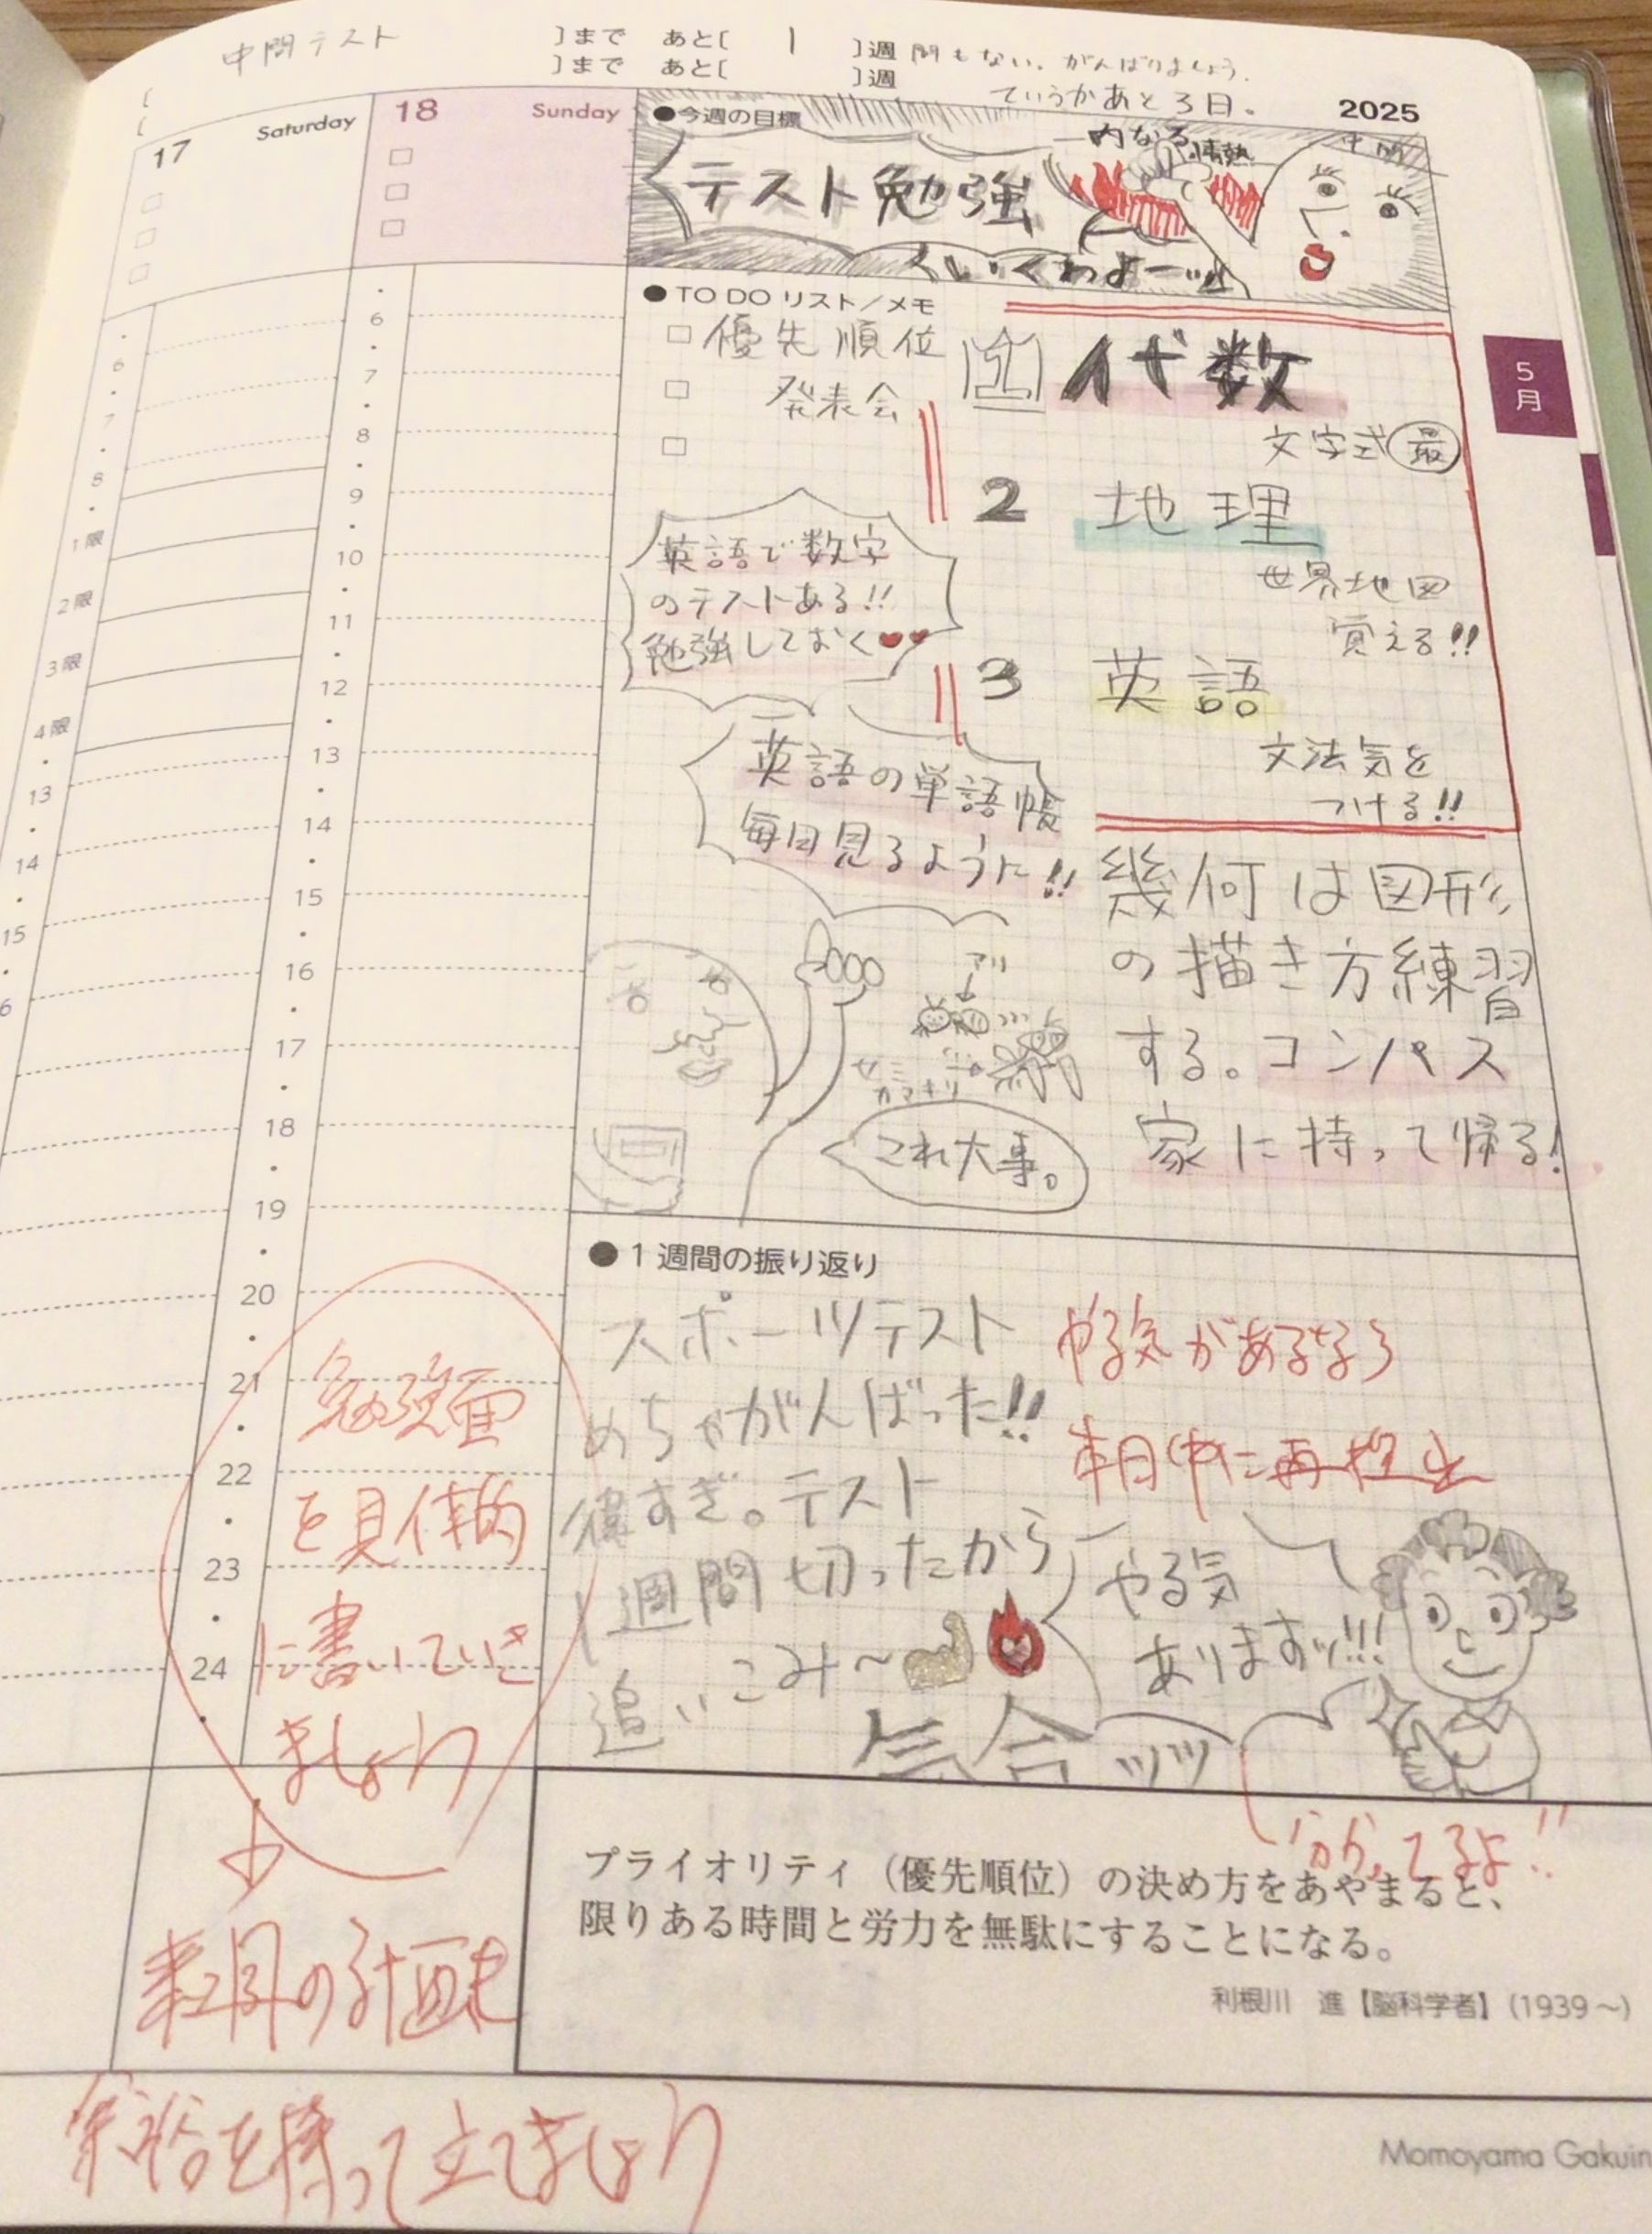 中間テスト 】まで あと【 1 】週間もない。がんばりましょう。
】まで あと【 】週
ていうかあと3日。
17 Saturday
18 Sunday
2025
●今週の目標
テスト勉強
内なる
情熱
くいくわよーッ!!
●TO DO リスト／メモ
優先順位
発表会
1 代数
文字式 最
2 地理
世界地図
覚える!!
3 英語
文法気を
つける!!
英語で数字
のテストある!!
勉強しておく
英語の単語帳
毎日見るように!!
幾何は図形
の描き方練習
する。コンパス
家に持って帰る!
アリ
セミ
カマキリ
これ大事。
5月
6
7
8
1限
2限
3限
4限
13
14
15
6
7
8
9
10
11
12
13
14
15
16
17
18
19
20
21
22
23
24
●1週間の振り返り
スポーツテスト
めちゃがんばった!!
偉すぎ。テスト
1週間切ったから
追いこみ〜
気合ッッ
やる気があるなら
本日中に再提出
やる気
ありますッ!!!
分かってるよ!!
勉強面
を具体的
に書いていき
ましょう
来週の計画を
余裕を持って立てましょう
プライオリティ（優先順位）の決め方をあやまると、
限りある時間と労力を無駄にすることになる。
利根川 進【脳科学者】(1939〜)
Momoyama Gakuin